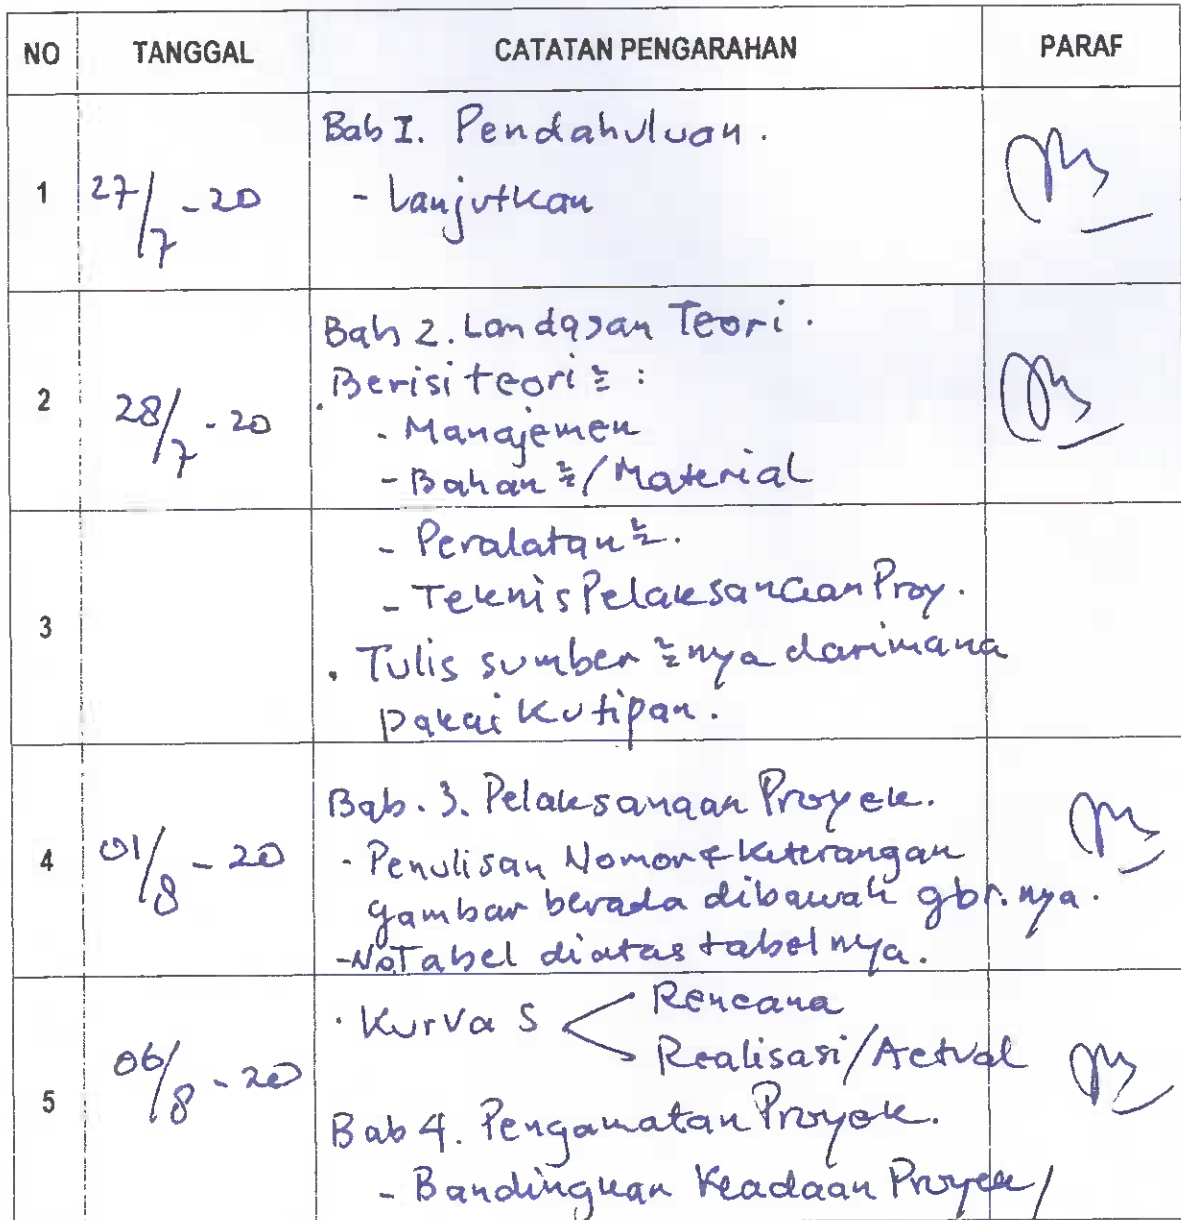 NO TANGGAL CATATAN PENGARAHAN PARAF
Bab I. Pendahuluan.
1 27/7 - 20 - Lanjutkan
Bab 2. Landasan Teori.
Berisi teori² :
2 28/7 - 20 - Manajemen
- Bahan²/Material
- Peralatan².
- Teknis Pelaksanaan Proy.
3
. Tulis sumber²nya darimana
pakai Kutipan.
Bab. 3. Pelaksanaan Proyek.
4 01/8 - 20 - Penulisan Nomor & Keterangan
gambar berada dibawah gbr.nya.
- No Tabel diatas tabelnya.
. Kurva S < Rencana
Realisasi/Actual
5 06/8 - 20
Bab 4. Pengamatan Proyek.
- Bandingkan Keadaan Proyek/